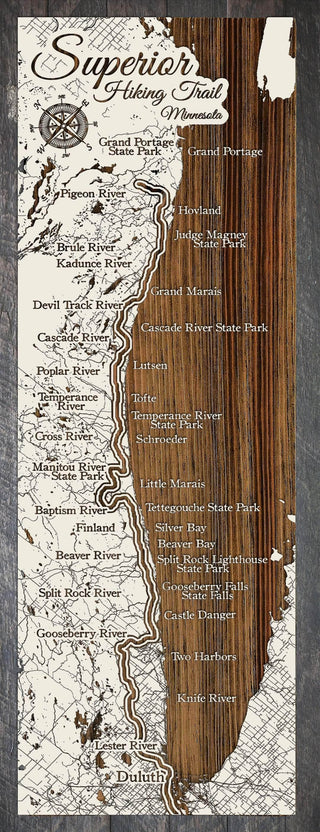 Superior
Hiking Trail
Minnesota
Grand Portage
State Park
Grand Portage
Pigeon River
Hovland
Judge Magney
State Park
Brule River
Kadunce River
Grand Marais
Devil Track River
Cascade River State Park
Cascade River
Lutsen
Poplar River
Temperance
River
Tofte
Temperance River
State Park
Cross River
Schroeder
Manitou River
State Park
Little Marais
Baptism River
Tettegouche State Park
Finland
Silver Bay
Beaver Bay
Beaver River
Split Rock Lighthouse
State Park
Split Rock River
Gooseberry Falls
State Falls
Castle Danger
Gooseberry River
Two Harbors
Knife River
Lester River
Duluth